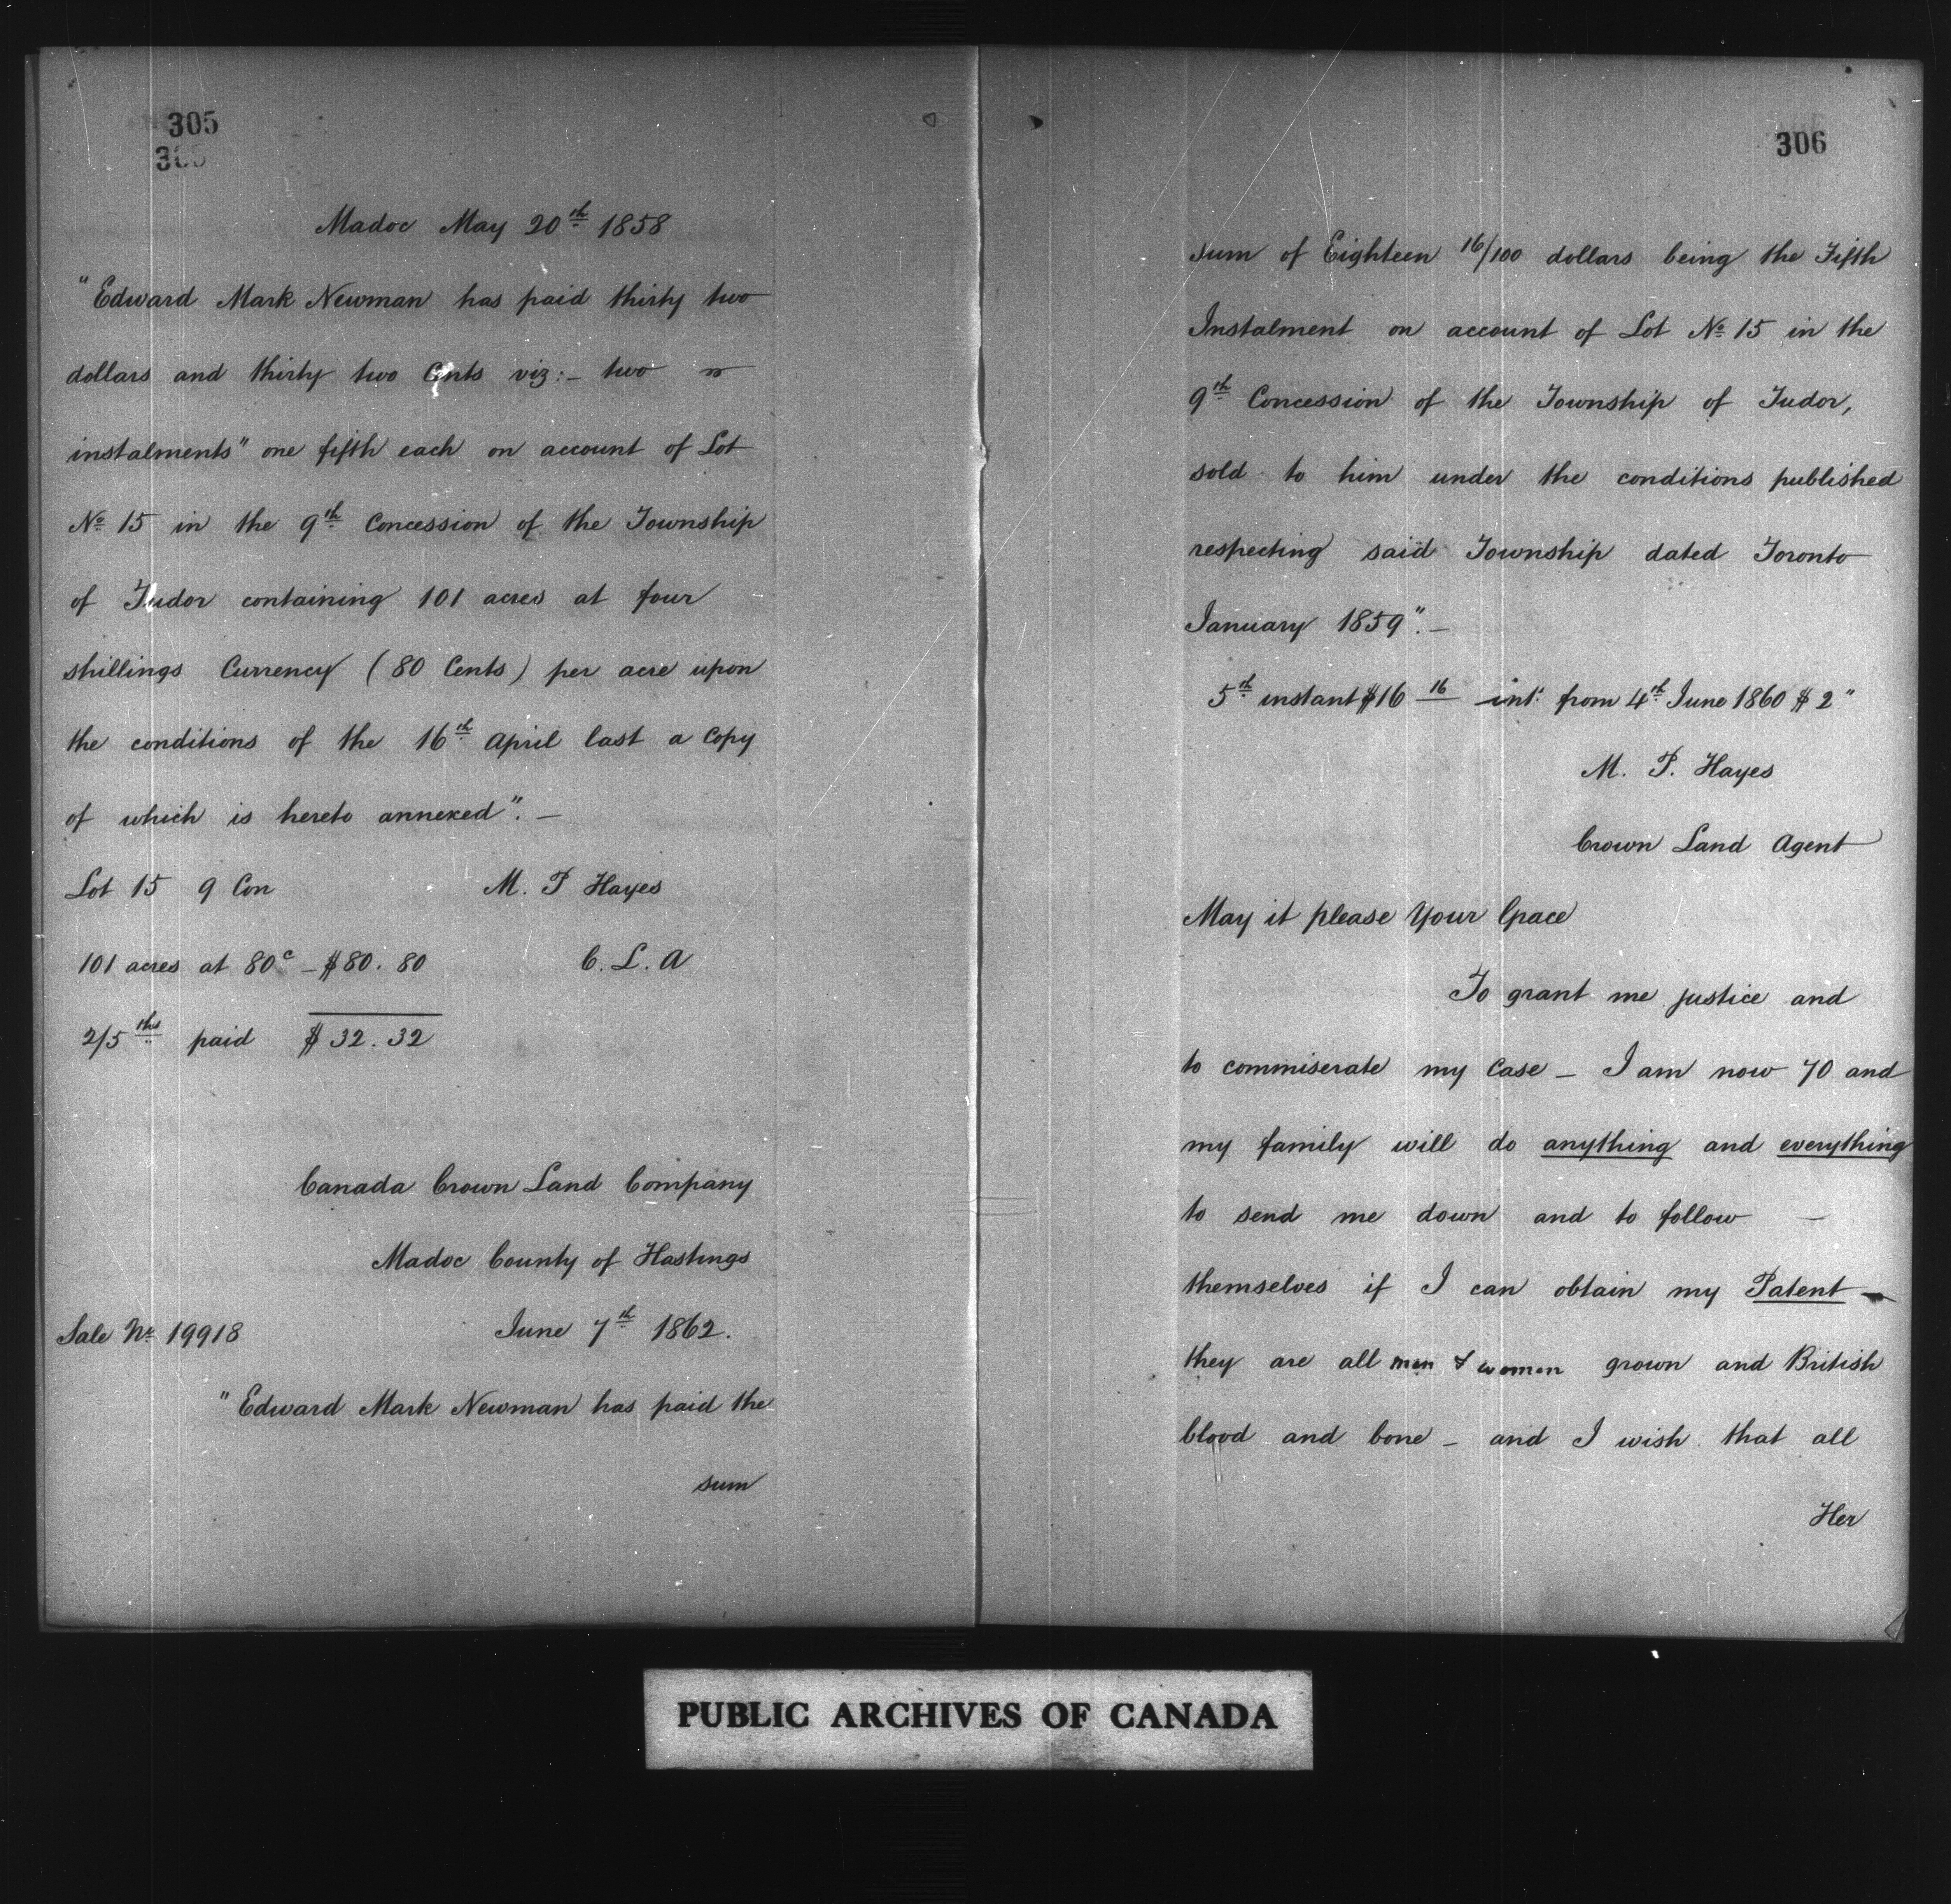 305
305
Madoc May 20th 1858
"Edward Mark Newman has paid thirty two
dollars and thirty two Cents viz:- two
instalments" one fifth each on account of Lot
No 15 in the 9th Concession of the Township
of Tudor containing 101 acres at four
shillings Currency (80 Cents) per acre upon
the conditions of the 16th April last a Copy
of which is hereto annexed". —
Lot 15 9 Con M. P Hayes
101 acres at 80c – $80.80 C. L. A
2/5ths paid $32.32
Canada Crown Land Company
Madoc County of Hastings
Sale No 19918 June 7th 1862.
"Edward Mark Newman has paid the
sum
306
sum of Eighteen 16/100 dollars being the Fifth
Instalment on account of Lot No 15 in the
9th Concession of the Township of Tudor,
sold to him under the conditions published
respecting said Township dated Toronto
January 1859". —
5th instant $16 16 int: from 4th June 1860 $2"
M. P. Hayes
Crown Land Agent
May it please Your Grace
To grant me justice and
to commiserate my Case – I am now 70 and
my family will do anything and everything
to send me down and to follow —
themselves if I can obtain my Patent —
they are all men & women grown and British
blood and bone – and I wish that all
Her
PUBLIC ARCHIVES OF CANADA